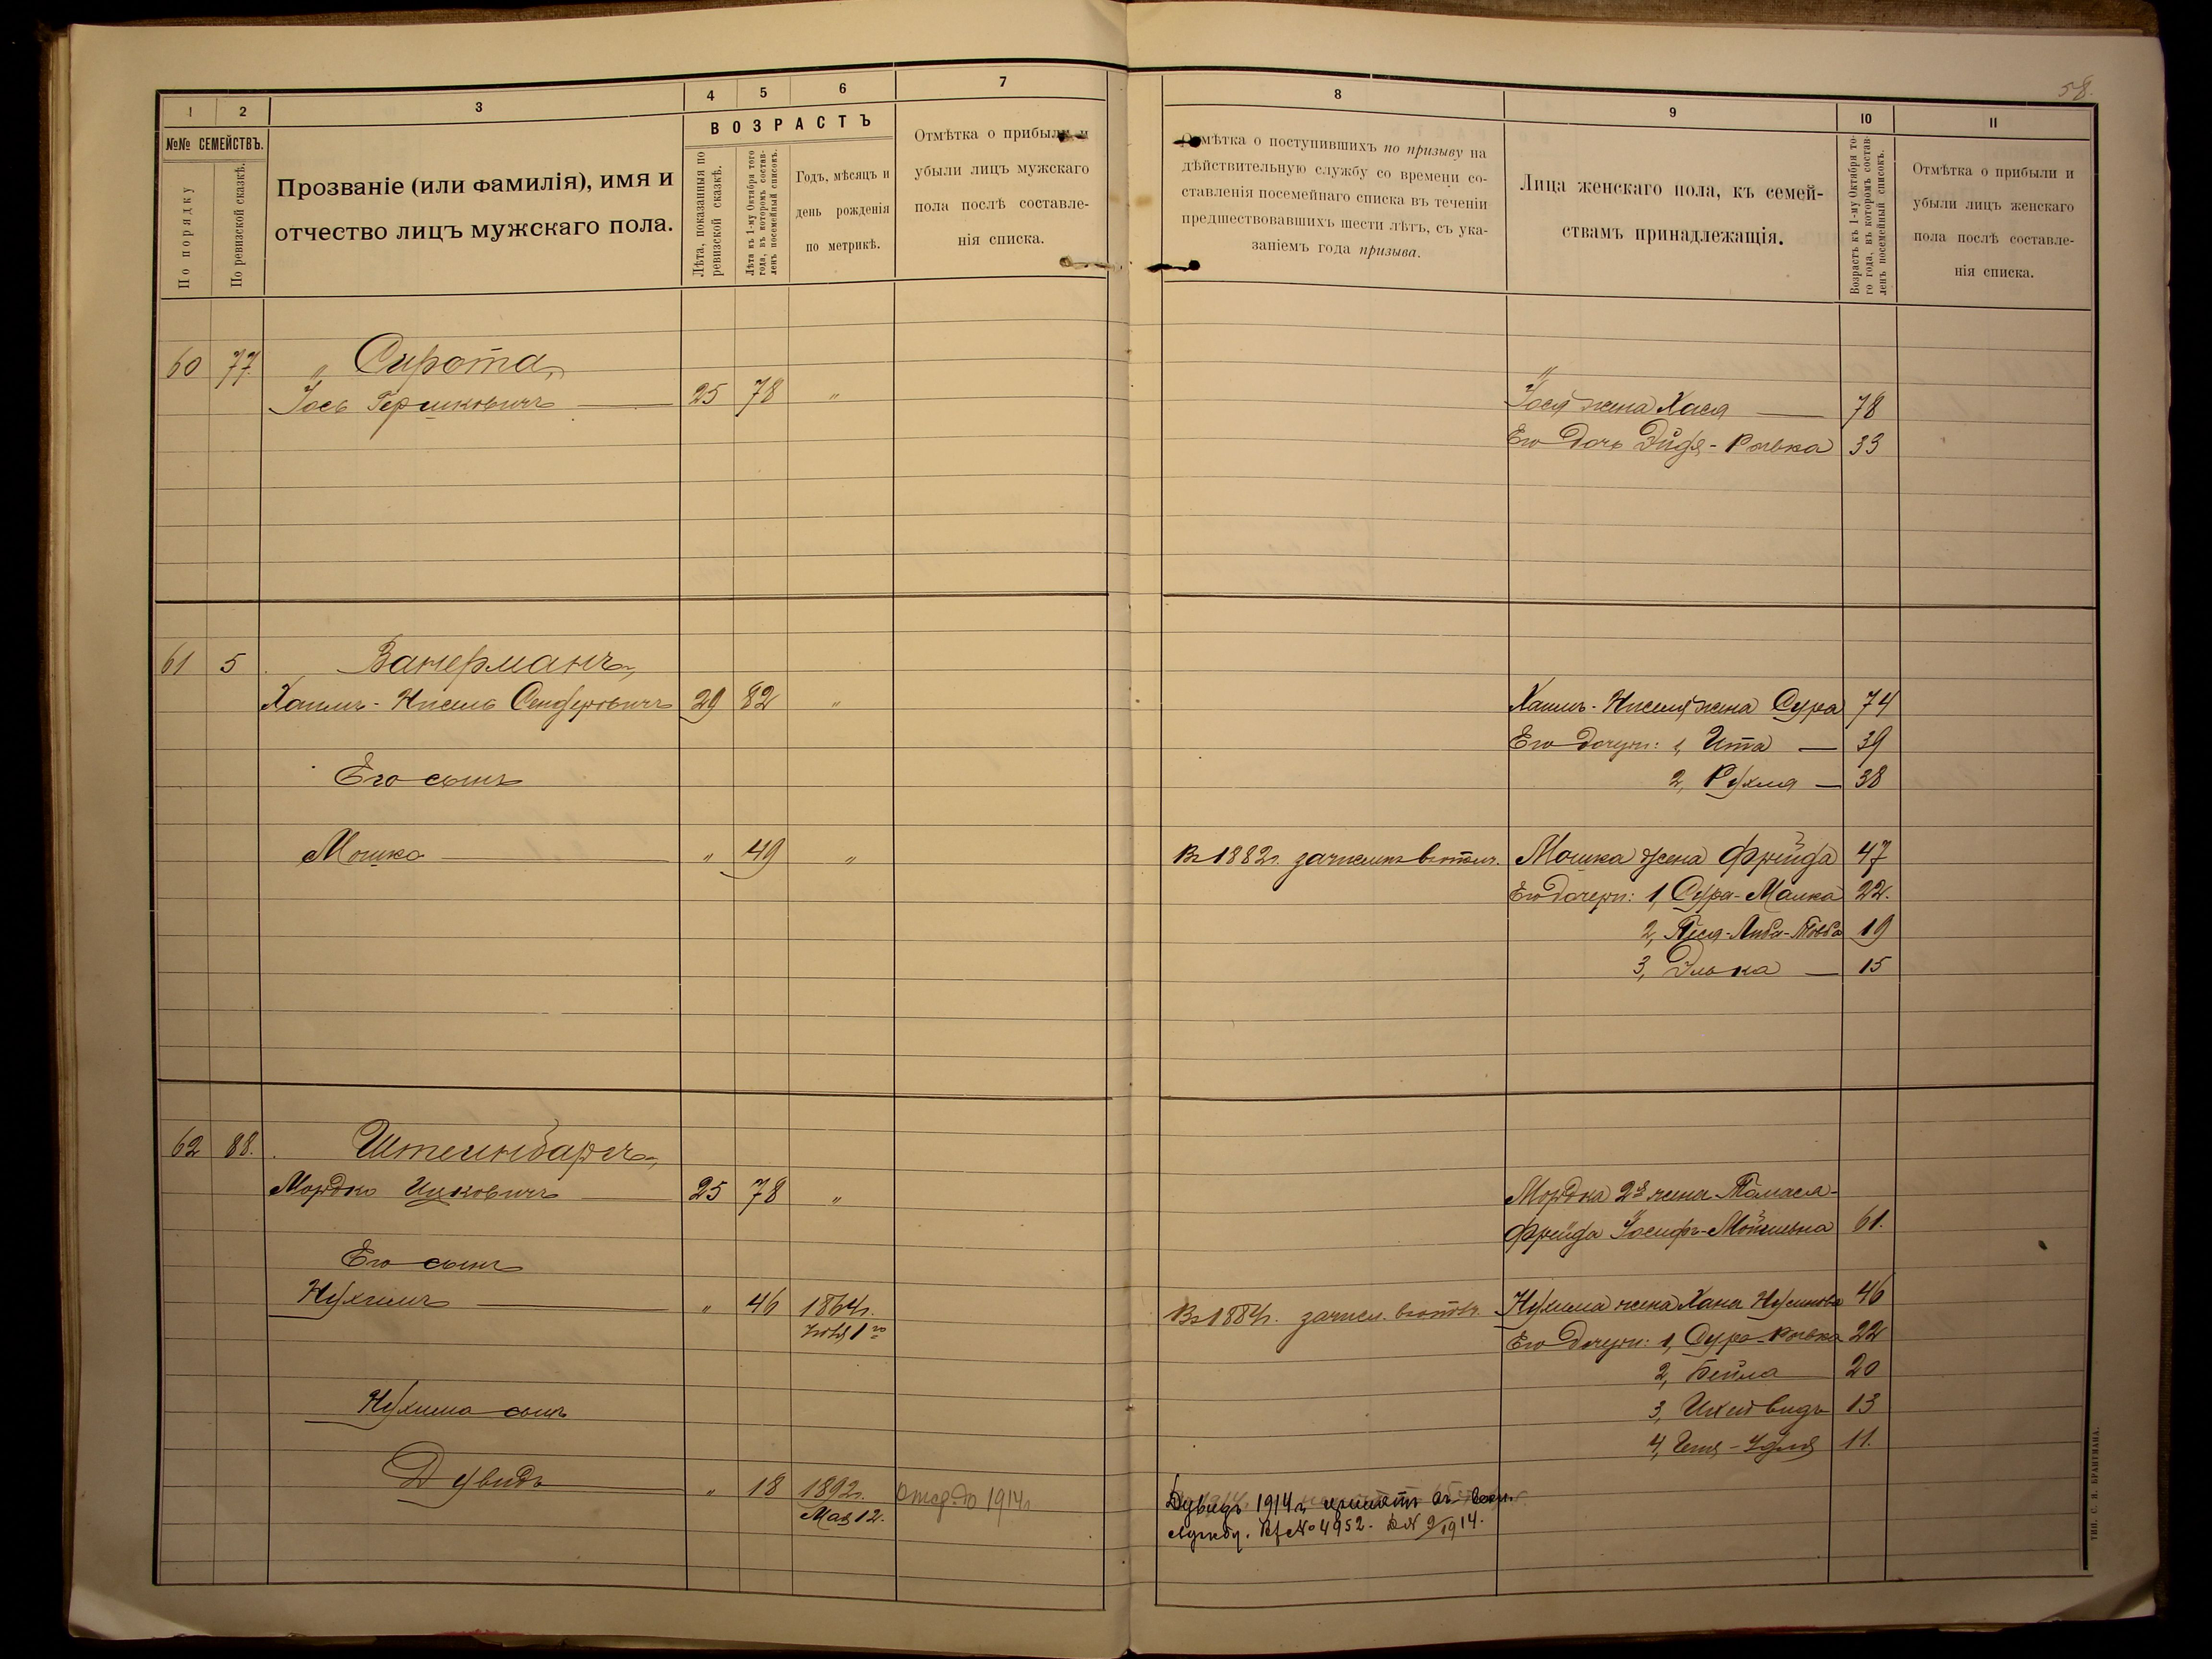 58.
1 2 3 4 5 6 7
№№ СЕМЕЙСТВЪ.
По порядку
По ревизской сказкѣ.
Прозваніе (или фамилія), имя и
отчество лицъ мужскаго пола.
ВОЗРАСТЪ
Лѣта, показанныя по
ревизской сказкѣ.
Лѣта къ 1-му Октября того
года, въ которомъ состав-
ленъ посемейный списокъ.
Годъ, мѣсяцъ и
день рожденія
по метрикѣ.
Отмѣтка о прибыли и
убыли лицъ мужскаго
пола послѣ составле-
нія списка.
8 9 10 11
Отмѣтка о поступившихъ по призыву на
дѣйствительную службу со времени со-
ставленія посемейнаго списка въ теченіи
предшествовавшихъ шести лѣтъ, съ ука-
заніемъ года призыва.
Лица женскаго пола, къ семей-
ствамъ принадлежащія.
Возрастъ къ 1-му Октября то-
го года, въ которомъ состав-
ленъ посемейный списокъ.
Отмѣтка о прибыли и
убыли лицъ женскаго
пола послѣ составле-
нія списка.
60 77. " Сирота,
Іось Гершковичъ — 25 78 "
Іося жена Хася — 78
Его дочь Эйдя-Ривка 33
61 5. Ванерманъ,
Хаимъ-Нисель Сендеровичъ 29 82 "
Хаимъ-Ниселя жена Сура 74
Его дочери: 1, Ита — 39
Его сынъ
2, Рухля — 38
Мошко — " 49 "
Въ 1882г. зачисленъ в ополч.
Мошка жена Фрейда 47
Его дочери: 1, Сура-Малка 22.
2, Песя-Либа-Товба 19
3, Элька — 15
62 88. Штейнбаргъ,
Мордко Ицковичъ — 25 78 "
Мордка 2я жена Томася-
Фрейда Іосифъ-Мойшевна 61.
Его сынъ
Нухимъ — " 46 1864г.
Іюля 1го
Въ 1884г. зачисл. в ополч.
Нухима жена Хана Нусимова 46
Его дочери: 1, Сура-Ривка 22
2, Бейла 20
Нухима сынъ
3, Ихевидъ 13
4, 11.
Дувидъ — " 18 1892г.
Мая 12.
Отср. до 1914г.
Дувидъ 1914г. принятъ въ воен.
службу. № 4952. 9/19 14.
ТИП. С. Н. БРАНТМАНА.